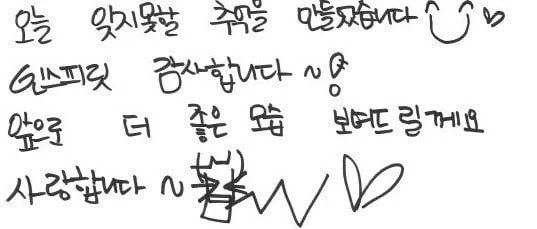 오늘 잊지못할 추억을 만들었습니다
인스피릿 감사합니다 ~
앞으로 더 좋은 모습 보여드릴게요
사랑합니다 ~